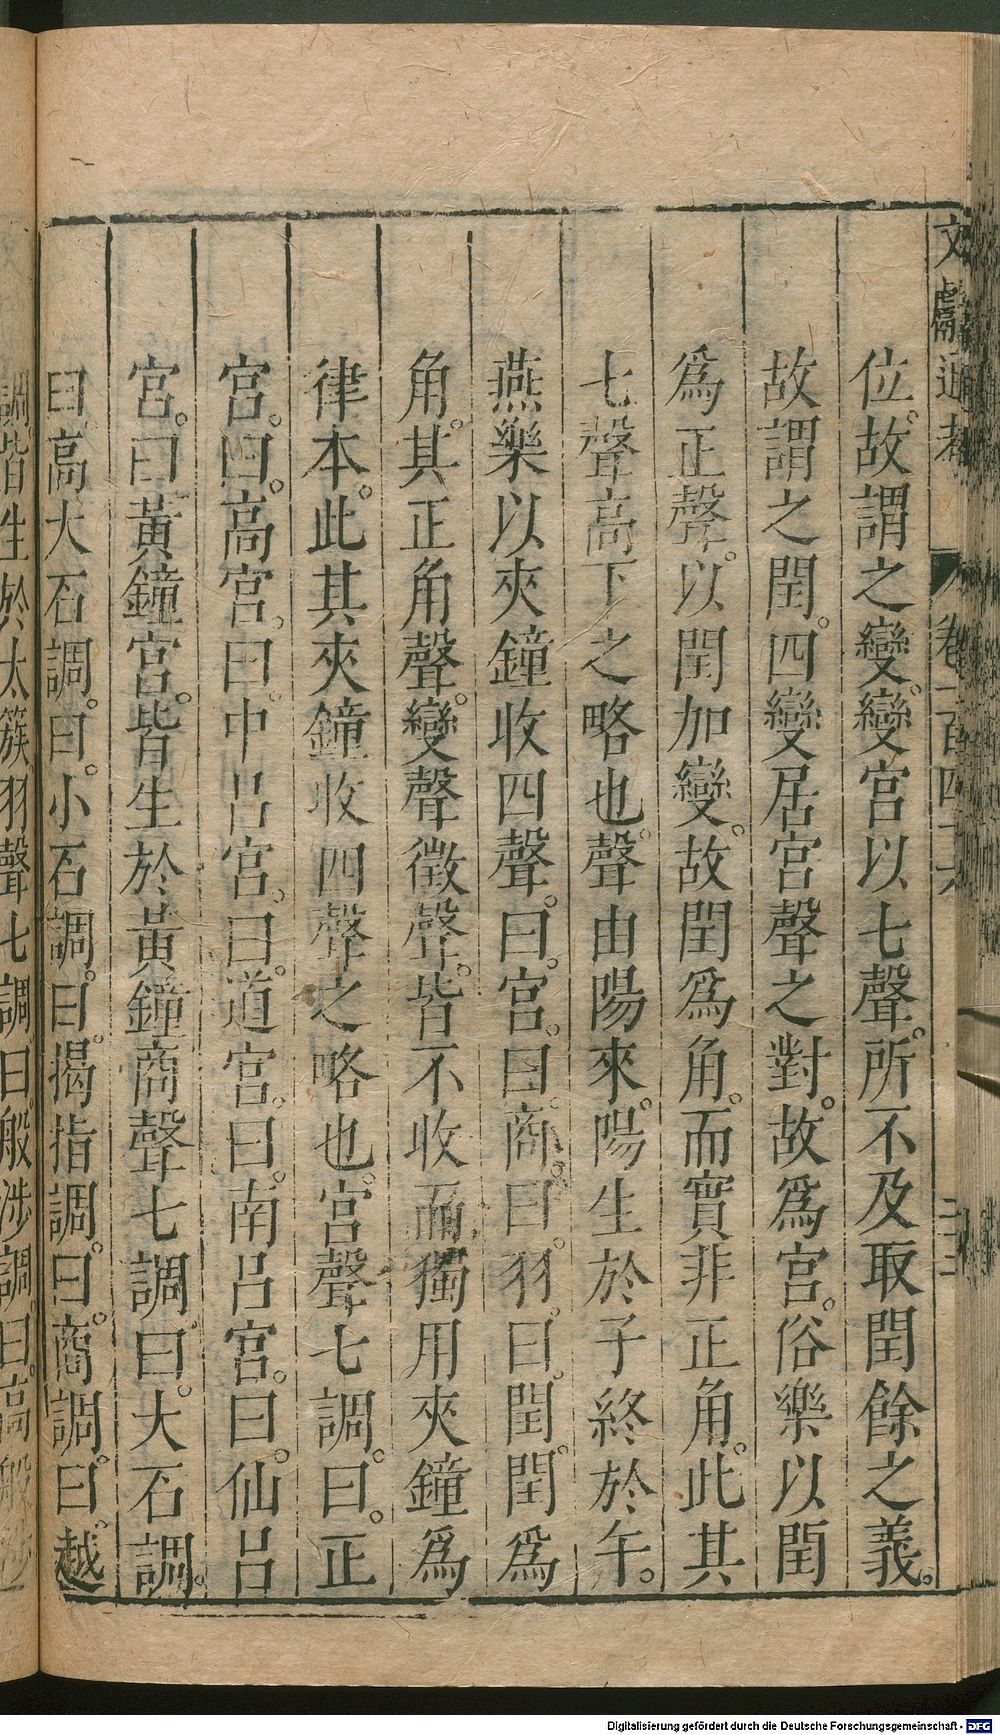 文獻通考 卷一百四十六
位。故謂之變。變宮以七聲。所不及取閏餘之義。
故謂之閏。四變居宮聲之對。故爲宮。俗樂以閏
爲正聲。以閏加變。故閏爲角。而實非正角。此其
七聲高下之略也。聲由陽來。陽生於子終於午。
燕樂以夾鐘收四聲。曰。宮。曰。商。曰。羽。曰。閏。閏爲
角。其正角聲。變聲徵聲。皆不收而獨用夾鐘爲
律本。此其夾鐘收四聲之略也。宮聲七調。曰。正
宮。曰。高宮。曰。中呂宮。曰。道宮。曰。南呂宮。曰。仙呂
宮。曰黃鐘宮。皆生於黃鐘商聲七調曰。大石調。
曰。高大石調。曰。小石調。曰。揭指調。曰。商調。曰。越
調。皆生於太簇羽聲七調曰。般涉調。曰。高般涉
Digitalisierung gefördert durch die Deutsche Forschungsgemeinschaft - DFG